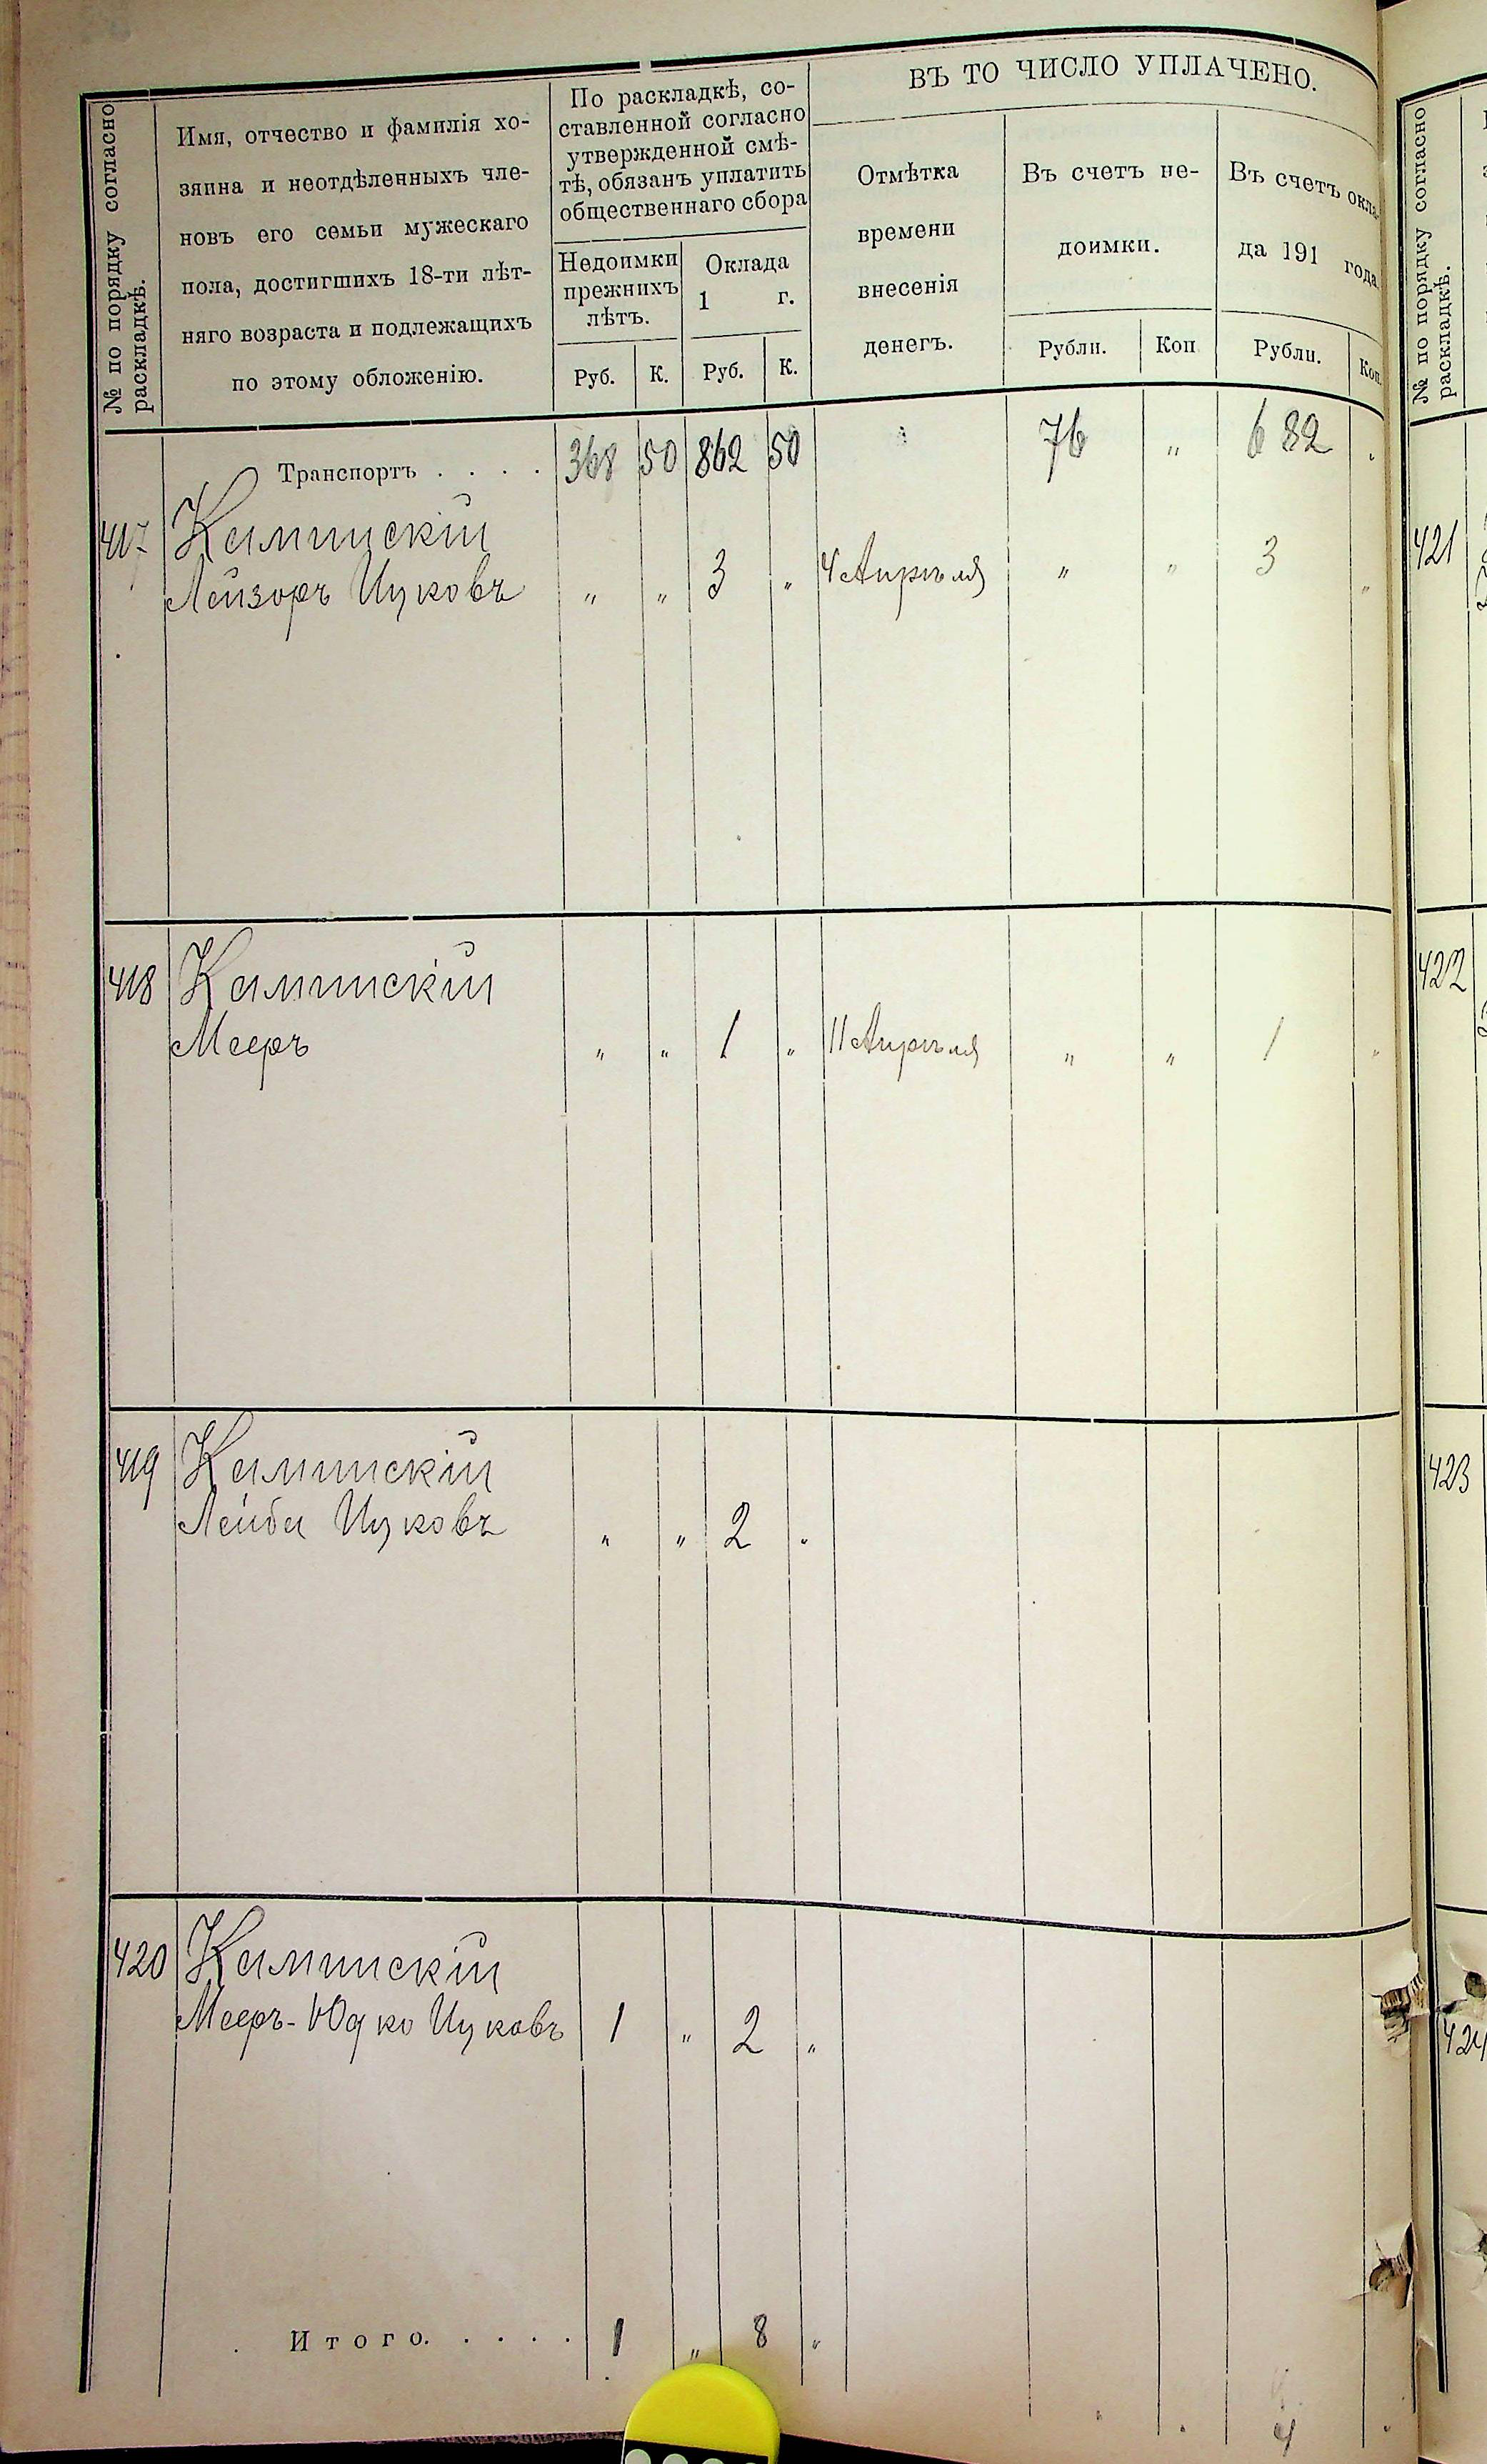 № по порядку согласно
раскладкѣ.
Имя, отчество и фамилія хо-
зяина и неотдѣленныхъ чле-
новъ его семьи мужескаго
пола, достигшихъ 18-ти лѣт-
няго возраста и подлежащихъ
по этому обложенію.
По раскладкѣ, со-
ставленной согласно
утвержденной смѣ-
тѣ, обязанъ уплатить
общественнаго сбора
Недоимки
прежнихъ
лѣтъ.
Оклада
1 г.
Руб. К. Руб. К.
ВЪ ТО ЧИСЛО УПЛАЧЕНО.
Отмѣтка
времени
внесенія
денегъ.
Въ счетъ не-
доимки.
Рубли. Коп
Въ счетъ окла-
да 191 года.
Рубли. Коп.
Транспортъ . . . . 368 50 862 50 76 " 682 "
417 Каминскій
Лейзоръ Ицковъ " " 3 " 4 Апрѣля " " 3 "
418 Каминскій
Мееръ " " 1 " 11 Апрѣля " " 1 "
419 Каминскій
Лейба Ицковъ " " 2 "
420 Каминскій
Мееръ-Юдко Ицковъ 1 " 2 "
Итого. . . . . 1 " 8 "
" " 4 "
№ по порядку согласно
раскладкѣ.
421
422
423
424